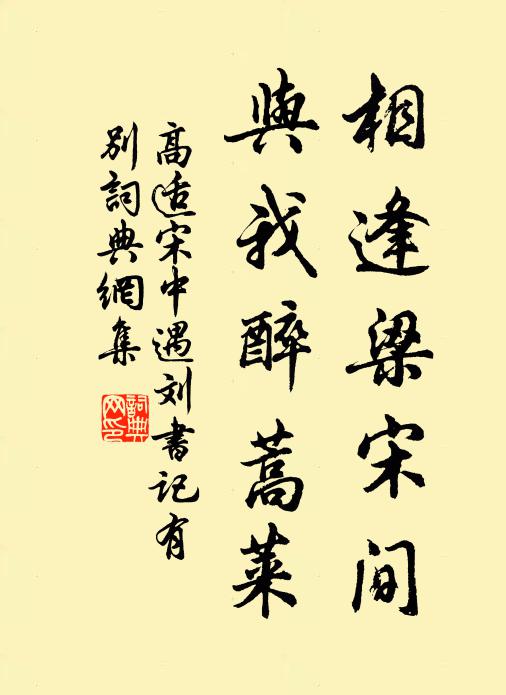 相逢梁宋间
與我醉蒿莱
高适宋中遇刘書记有
别詞典網集
詞典网印